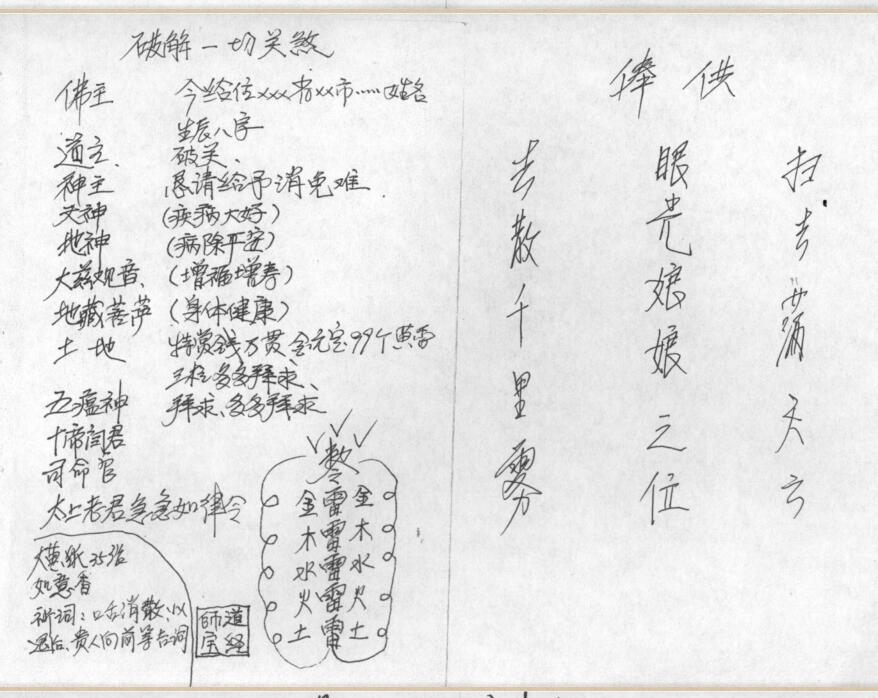 破解一切关煞
佛主 今给位xxx省xx市……姓名
生辰八字
道主、 破关、
神主 恳请给予消免难.
天神 (疾病大好)
地神 (病除平安)
大慈观音、 (增福增寿)
地藏菩萨 (身体健康)
土地 特赏钱万贯金元宝99个黄香
三柱多多拜求、
五瘟神 拜求、多多拜求
十帝闫君
司命官
太上老君急急如律令
金雷金
木雷木
水雷水
火雷火
土雷土
大黄纸35张
如意香
祈词:口舌消散、小人
退后、贵人向前等台词
師道
宝经
俸供
扫去满天云
眼光娘娘之位
去散千里雾